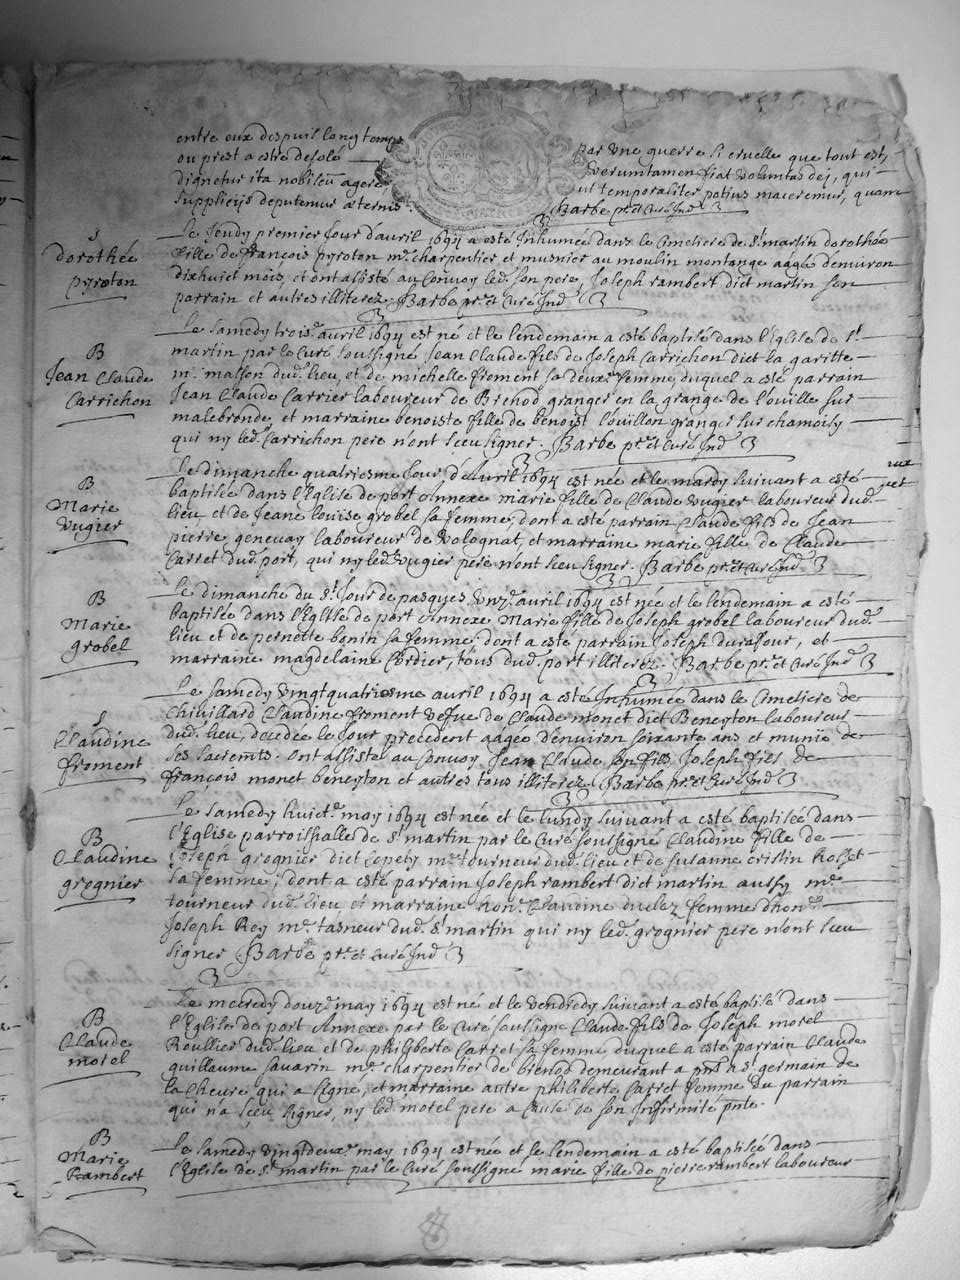 entre eux despuis long temps par une guerre si cruelle que tout est,
ou prest a estre desolé veruntamen fiat voluntas dei, qui
dignetur ita nobiscu agere ut temporaliter potius maceremur, quam
Suppliciis deputemur æternis. Barbe pr. et Curé Ind
S
dorothée
pyroton
Le Jeudy premier Jour d'avril 1694 a esté Inhumée dans le Cimetiere de St. martin dorothée
fille de françois pyroton me. charpentier et musnier au moulin montange aagée d'environ
dixhuict mois, et ont assisté au Convoy led. son pere, Joseph rambert dict martin son
parrain et autres illiterez. Barbe pr. et Curé Ind
B
Jean Claude
Carrichon
Le samedy trois. avril 1694 est né et le lendemain a esté baptisé dans l'Eglise de St.
martin par le Curé soussigné Jean Claude fils de Joseph Carrichon dict la garitte
me. masson dud. lieu, et de michelle froment sa deuxe. femme, duquel a esté parrain
Jean Claude Carrier laboureur de Brenod granger en la grange de l'ouille sur
malebronde, et marraine benoiste fille de benoist l'ouillon granger sur chamoisy
qui ny led. Carrichon pere n'ont sceu signer. Barbe pr. et Curé Ind
B
Marie
Vugier
Le dimanche quatriesme Jour d'Avril 1694 est née et le mardy suivant a esté
baptisée dans l'Eglise de port Annexe marie fille de Claude Vugier laboureur dud.
lieu et de Jeane louise grobel sa femme, dont a esté parrain Claude fils de Jean
pierre genevay laboureur de Volognat, et marraine marie fille de Claude
Carret dud. port, qui ny led. Vugier pere n'ont sceu signer. Barbe pr. et Curé Ind
B
Marie
grobel
Le dimanche du St. Jour de pasques unze. avril 1694 est née et le lendemain a esté
baptisée dans l'Eglise de port Annexe Marie fille de Joseph grobel laboureur dud.
lieu et de pernette bonin sa femme, dont a esté parrain Joseph durafour, et
marraine magdelaine Cordier, tous dud. port illiterez. Barbe pr. et Curé Ind
S
Claudine
froment
Le samedy vingtquatriesme avril 1694 a esté Inhumée dans le Cimetiere de
Chivillard Claudine froment vefve de Claude monet dict Beneyton laboureur
dud. lieu, decedée le Jour precedent aagée d'environ soixante ans et munie de
ses sacremts. Ont assisté au Convoy Jean Claude son fils, Joseph fils de
françois monet beneyton et autres tous illiterez. Barbe pr. et Curé Ind
B
Claudine
grognier
Le samedy huicte. may 1694 est née et le lundy suivant a esté baptisée dans
l'Eglise parroissialle de St. martin par le Curé soussigné Claudine fille de
Joseph grognier dict me. tourneur dud. lieu et de susanne cristin
sa femme, dont a esté parrain Joseph rambert dict martin aussy me.
tourneur dud. lieu et marraine hone. Claudine duclez femme d'hone.
Joseph Rey me. tasneur dud. St. martin qui ny led. grognier pere n'ont sceu
signer Barbe pr. et Curé Ind
B
Claude
morel
Le mecredy douze. may 1694 est né et le vendredy suivant a esté baptisé dans
l'Eglise de port Annexe par le Curé soussigné Claude fils de Joseph morel
Roullier dud. lieu et de philiberte Carret sa femme duquel a esté parrain Claude
guillaume savarin me. charpentier de brenod demeurant a pnt. a St. germain de
la Cheure qui a signé, et marraine autre philiberte Carret femme du parrain
qui n'a sceu signer, ny led. morel pere a Cause de son Infirmité pnte.
B
Marie
Rambert
Le samedy vingtdeuxe. may 1694 est née et le lendemain a esté baptisée dans
l'Eglise de St. martin par le Curé soussigné marie fille de pierre rambert laboureur